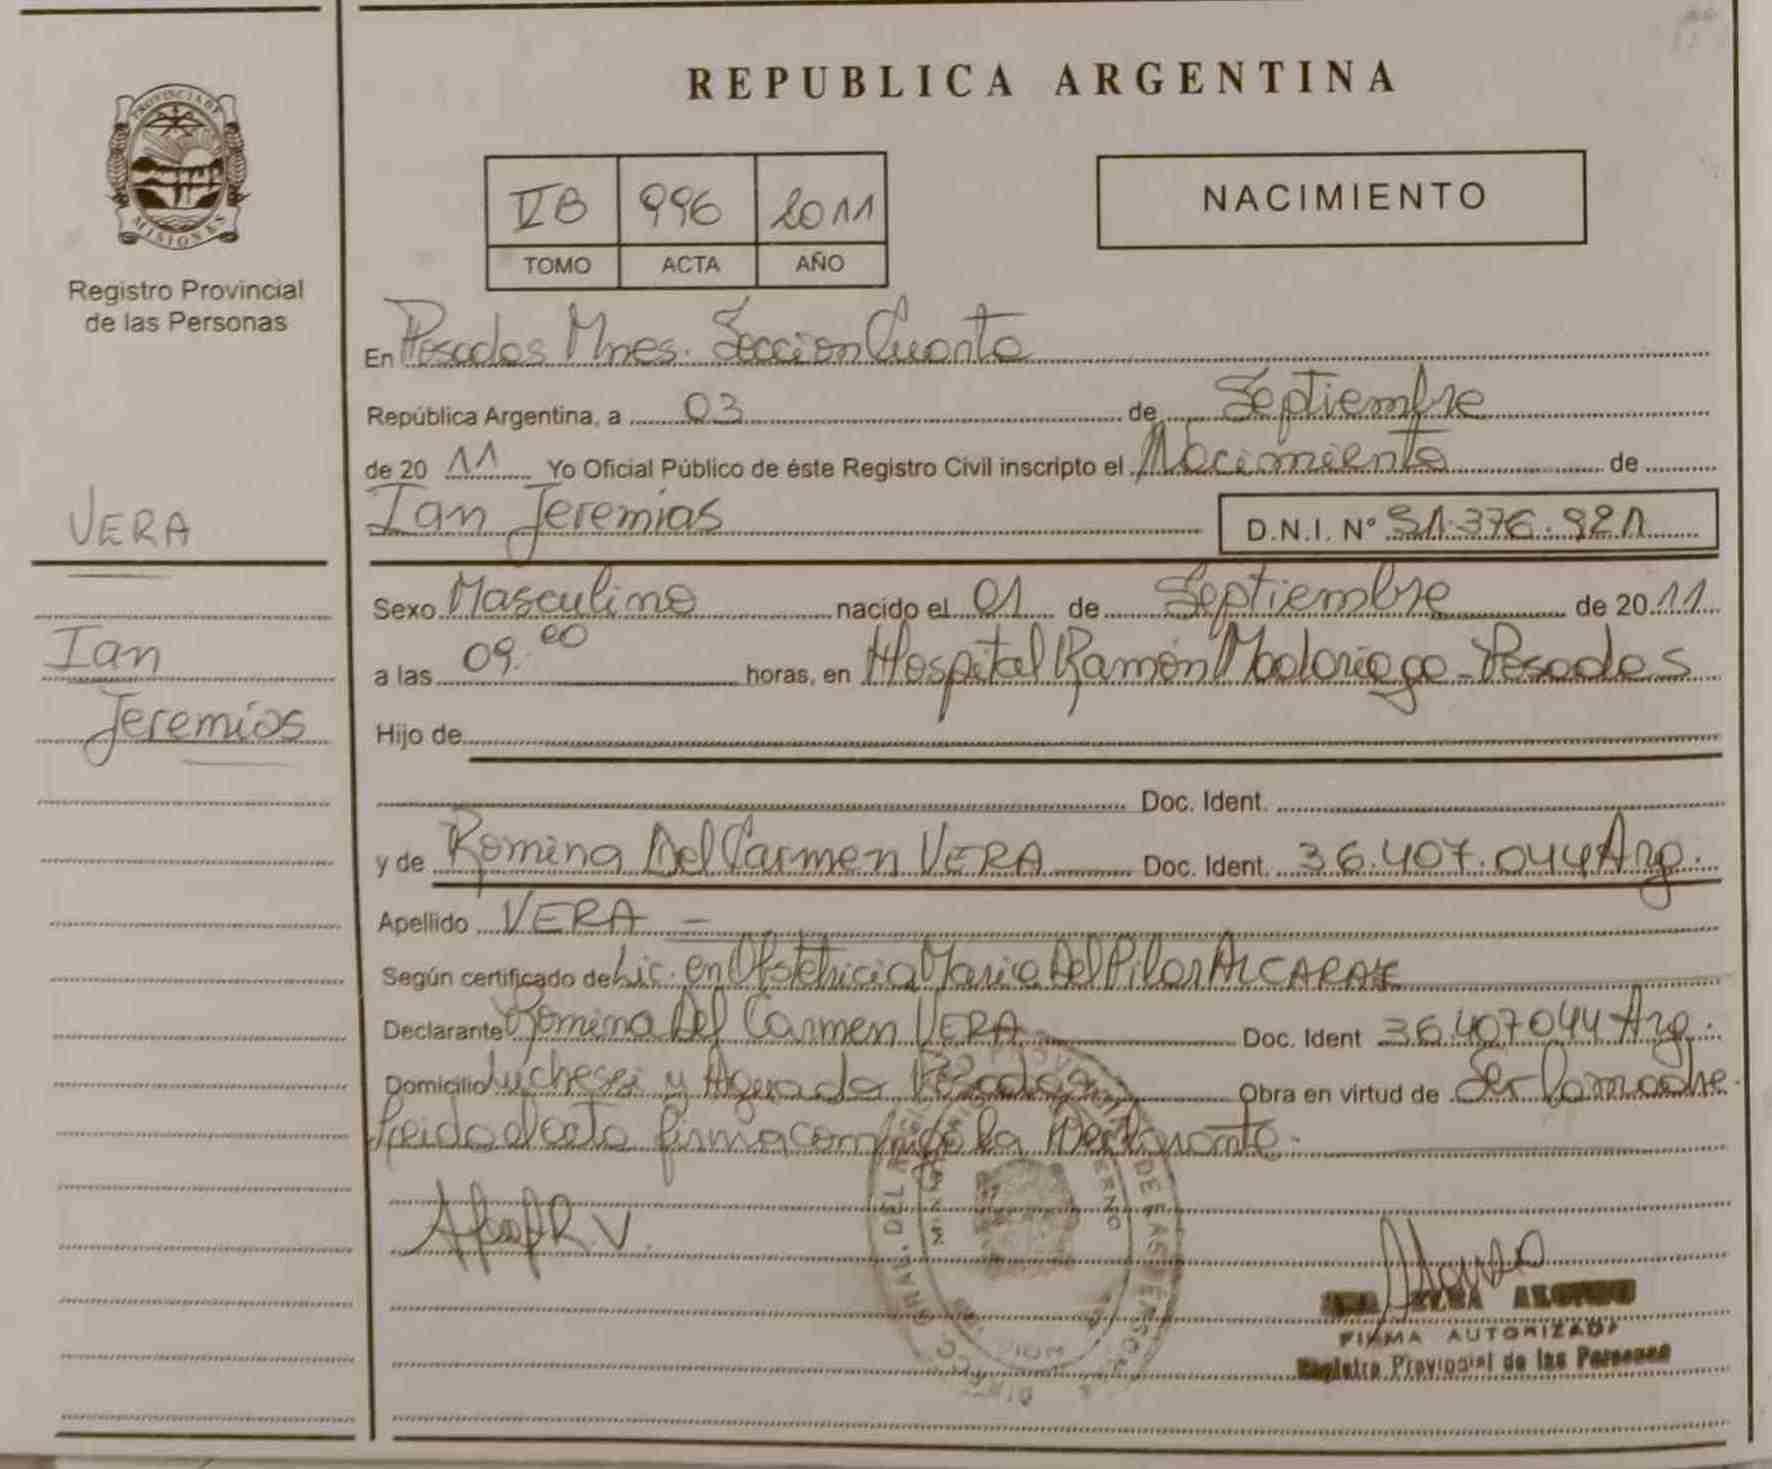 PROVINCIA DE
MISIONES
Registro Provincial
de las Personas
VERA
Ian
Jeremias
REPUBLICA ARGENTINA
VB 996 2011
TOMO ACTA AÑO
NACIMIENTO
En Posadas Mnes. Seccion Cuarta
República Argentina, a 03 de Septiembre
de 2011 Yo Oficial Público de éste Registro Civil inscripto el Nacimiento de
Ian Jeremias D.N.I. Nº 51.376.921
Sexo Masculino nacido el 01 de Septiembre de 2011
a las 09.00 horas, en Hospital Ramón Madariaga - Posadas
Hijo de
Doc. Ident.
y de Romina Del Carmen VERA Doc. Ident. 36.407.044 Arg.
Apellido VERA -
Según certificado de Lic. en Obstetricia Maria Del Pilar ALCARAZ
Declarante Romina Del Carmen VERA Doc. Ident 36.407044 Arg.
Domicilio Luchessi y Aguado Posadas Obra en virtud de Ser la madre.
Leida el acta firma conmigo la Declarante.
R.V.
ELSA
FIRMA AUTORIZADA
Registro Provincial de las Personas